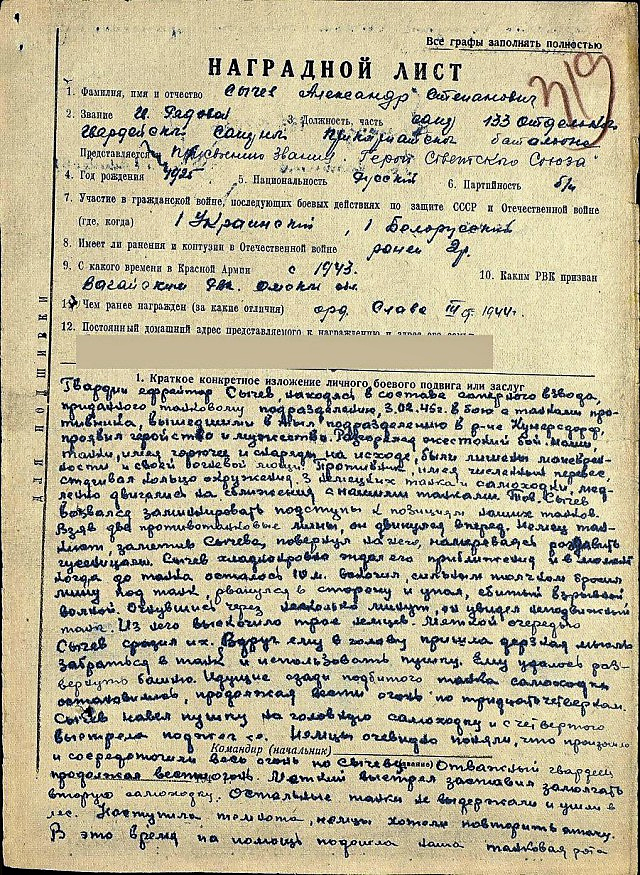 Все графы заполнять полностью
НАГРАДНОЙ ЛИСТ
319
1. Фамилия, имя и отчество Сычев Александр Степанович
2. Звание 3. Должность, часть 133 Отдельного
Гвардейского батальона
Представляется к присвоению Звания "Герой Советского Союза"
4. Год рождения 1925 5. Национальность Русский 6. Партийность б/п
7. Участие в гражданской войне, последующих боевых действиях по защите СССР и Отечественной войне
(где, когда) 1 Украинский, 1 Белорусский
8. Имеет ли ранения и контузии в Отечественной войне ранен
9. С какого времени в Красной Армии с 1943. 10. Каким РВК призван
Вагайским
11. Чем ранее награжден (за какие отличия) орд. Слава III 1944г.
12. Постоянный домашний адрес представляемого к награждению и адрес его семьи
ДЛЯ ПОДШИВКИ
1. Краткое конкретное изложение личного боевого подвига или заслуг
Гвардии ефрейтор Сычев, находясь в составе саперного взвода,
приданного танковому подразделению, 3.02.45г. в бою с танками про-
тивника, вышедшими в тыл подразделению в р-не Кунерсдорф,
проявил геройство и мужество. Разгорелся жестокий бой, наши
танки, имея горючее и снаряды на исходе, были лишены маневрен-
ности и своей огневой мощи. Противник, имея численный перевес,
сдвигал кольцо окружения. 3 немецких танка и самоходки, мед-
ленно двигались на сближение с нашими танками. Тов. Сычев
вызвался заминировать подступы к позициям наших танков.
Взяв две противотанковые мины, он двинулся вперед. Немец тан-
кист, заметив Сычева, повернул на него, намереваясь раздавить
гусеницами. Сычев хладнокровно ждал его приближения и в момент
когда до танка осталось 10 м. вскочил, сильным толчком бросил
мину под танк, рванулся в сторону и упал, сбитый взрывной
волной. Очнувшись через несколько минут, он увидел неподвижный
танк. Из него выскочило трое немцев. Меткой очередью
Сычев сразил их. Вдруг ему в голову пришла дерзкая мысль
забраться в танк и использовать пушку. Ему удалось раз-
вернуть башню. Идущие сзади подбитого танка самоходки
остановились, продолжая вести огонь по тридцатьчетверкам.
Сычев навел пушку на головную самоходку и с четвертого
выстрела поджег ее. Немцы очевидно поняли, что произошло
Командир (начальник)
и сосредоточили весь огонь по Сычеву. Отважный гвардеец
продолжал вести огонь. Меткий выстрел заставил замолчать
вторую самоходку. Остальные танки не выдержали и ушли в
лес. Наступила темнота, немцы хотели повторить атаку.
В это время на помощь подошла наша танковая рота